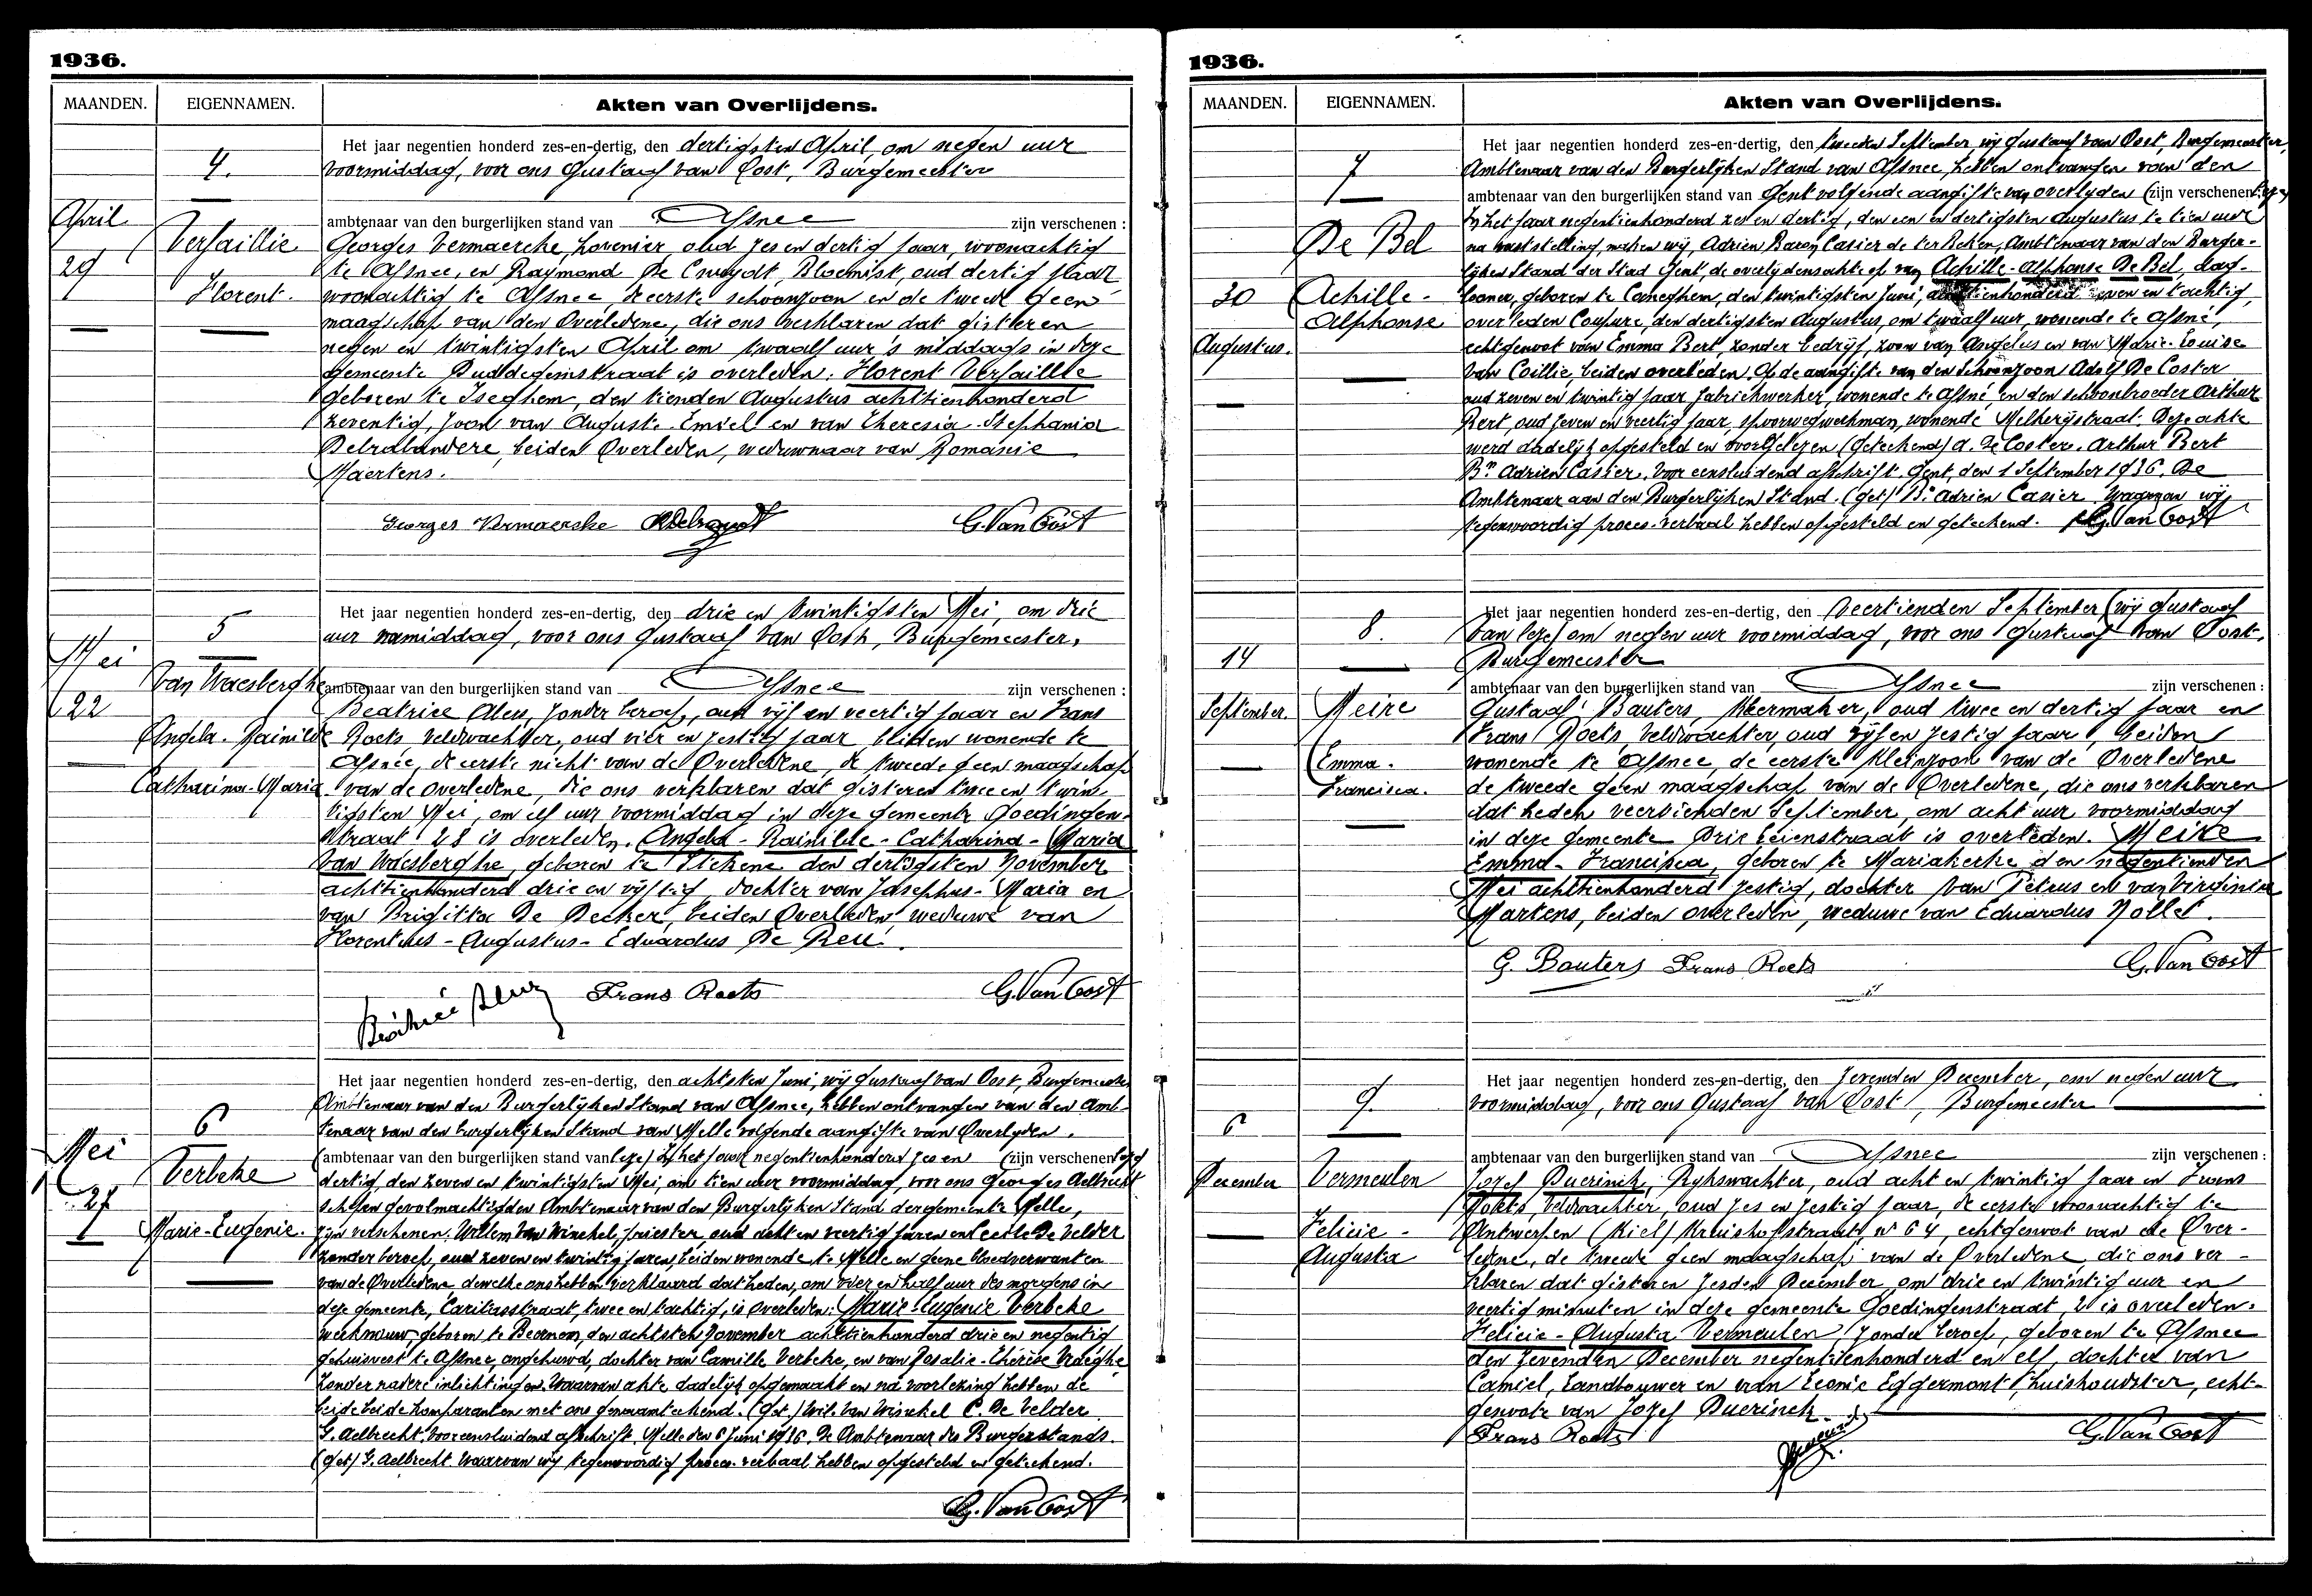 1936.
MAANDEN.
EIGENNAMEN.
Akten van Overlijdens.
4.
April
29
Versaillie
Florent.
Het jaar negentien honderd zes-en-dertig, den dertigsten April, om negen uur
voormiddag, voor ons Gustaaf van Oost, Burgemeester
ambtenaar van den burgerlijken stand van Afsnee zijn verschenen :
Georges Vermaercke, hovenier oud zes en dertig jaar, woonachtig
te Afsnee, en Raymond De Cruydt, Bloemist, oud dertig jaar
woonachtig te Afsnee, de eerste schoonzoon en de tweede geen
maagschap van den Overledene, die ons verklaren dat gisteren
negen en twintigsten April om twaalf uur 's middags in deze
gemeente Duddegemstraat is overleden: Florent Versaillie
geboren te Iseghem, den tienden Augustus achttienhonderd
zeventig, zoon van Auguste-Emiel en van Theresia-Stephania
Debrabandere, beiden Overleden, weduwnaar van Romanie
Maertens.
Georges Vermaercke G. Van Oost
5
Mei
22
Van Waesberghe
Angela-Rainilde
Catharina-Maria
Het jaar negentien honderd zes-en-dertig, den drie en twintigsten Mei, om drie
uur namiddag, voor ons Gustaaf Van Oost, Burgemeester,
ambtenaar van den burgerlijken stand van Afsnee zijn verschenen :
Beatrice Aleu, zonder beroep, oud vijf en veertig jaar en Frans
Roets, veldwachter, oud vier en zestig jaar beiden wonende te
Afsnee, de eerste nicht van de Overledene, de tweede geen maagschap
van de overledene, die ons verklaren dat gisteren twee en twin
tigsten Mei, om elf uur voormiddag in deze gemeente Goedingen-
straat 28 is overleden, Angela-Rainilde-Catharina-Maria
Van Waesberghe, geboren te Stekene den dertigsten November
achttienhonderd drie en vijftig, dochter van Josephus-Maria en
van Brigitta De Decker, beiden Overleden, weduwe van
Florentinus-Augustus-Eduardus De Reu.
Frans Roets G. Van Oost
6
Mei
27
Verbeke
Marie-Eugenie.
Het jaar negentien honderd zes-en-dertig, den achtsten Juni, wij Gustaaf van Oost, Burgemeester
Ambtenaar van den Burgerlijken Stand van Afsnee, hebben ontvangen van den Amb-
tenaar van den burgerlijken Stand van Melle volgende aangifte van Overlyden.
(ambtenaar van den burgerlijken stand van lege) In het jaar negentienhonderd zes en (zijn verschenen lege)
dertig, den zeven en twintigsten Mei, om tien uur voormiddag, voor ons Georges Aelbrecht
schepen gevolmachtigden Ambtenaar van den Burgerlijken Stand der gemeente Melle,
zijn verschenen: Willem Van Winckel, priester, oud acht en veertig jaren en Cecile De Velder
zonder beroep, oud zeven en twintig jaren, beiden wonende te Melle en geene bloedverwanten
van de Overledene, dewelke ons hebben verklaard dat heden, om vier en half uur des morgens in
deze gemeente, Caritasstraat, twee en tachtig, is Overleden: Marie-Eugenie Verbeke
werkvrouw, geboren te Beernem, den achtsten November achttienhonderd drie en negentig
gehuisvest te Afsnee, ongehuwd, dochter van Camille Verbeke, en van Rosalie-Thérèse Vraeghe
zonder nadere inlichtingen. Waarvan akte dadelijk opgemaakt en na voorlezing hebben de
beide beide komparanten met ons genaamteekend. (get.) Wil. Van Winckel C. De Velder
G. Aelbrecht. Voor eensluidend afschrift. Melle den 6 Juni 1936. De Ambtenaar des Burgerstands.
(get) G. Aelbrecht. Waarvan wij tegenwoordig proces-verbaal hebben opgesteld en geteekend.
G. Van Oost
1936.
MAANDEN.
EIGENNAMEN.
Akten van Overlijdens.
7
30
Augustus.
De Bel
Achille-
Alphonse
Het jaar negentien honderd zes-en-dertig, den tweeden September, wij Gustaaf van Oost, Burgemeester,
Ambtenaar van den Burgerlijken Stand van Afsnee, hebben ontvangen van den
ambtenaar van den burgerlijken stand van Gent volgende aangifte van overlyden (zijn verschenen: lege)
In het jaar negentienhonderd zes en dertig, den een en dertigsten Augustus te tien uur
na vaststelling, maken wij, Adrien Baron Casier de ter Beken, Ambtenaar van den Burger-
lijken Stand der Stad Gent, de overlydensakte op van Achille-Alphonse De Bel, dag-
looner, geboren te Caneghem, den twintigsten Juni, achttienhonderd zeven en tachtig,
overleden Coupure, den dertigsten Augustus, om twaalf uur, wonende te Afsné,
echtgenoot van Emma Bert, zonder bedrijf, zoon van Angelus en van Marie-Louise
Van Coillie, beiden overleden. Op de aangifte van den schoonzoon Adolf De Coster
oud zeven en twintig jaar fabriekwerker, wonende te Afsné en den schoonbroeder Arthur
Bert, oud zeven en veertig jaar, spoorwegwerkman, wonende Melkerijstraat. Deze akte
werd dadelijk opgesteld en voorgelezen (Geteekend) A. De Coster. Arthur Bert
Bn Adrien Casier. Voor eensluidend afschrift. Gent, den 1 September 1936. De
Ambtenaar aan den Burgerlijken Stand. (get) Bn Adrien Casier. Waarvan wij
tegenwoordig proces-verbaal hebben opgesteld en geteekend. G. Van Oost
8.
14
September.
Meire
Emma.
Francisca.
Het jaar negentien honderd zes-en-dertig, den veertienden September (wij Gustaaf
Van lege) om negen uur voormiddag, voor ons Gustaaf Van Oost,
Burgemeester
ambtenaar van den burgerlijken stand van Afsnee zijn verschenen :
Gustaaf Bauters, oud twee en dertig jaar en
Frans Roets, veldwachter, oud vijf en zestig jaar, beiden
wonende te Afsnee, de eerste kleinzoon van de Overledene
de tweede geen maagschap van de Overledene, die ons verklaren
dat heden veertienden September, om acht uur voormiddag
in deze gemeente Drie Leienstraat is overleden. Meire
Emma-Francisca, geboren te Mariakerke den negentienden
Mei achttienhonderd zestig, dochter van Petrus en van Virginia
Martens, beiden overleden, weduwe van Eduardus Nollet.
G. Bauters Frans Roets G. Van Oost
9.
6
December
Vermeulen
Felicie-
Augusta
Het jaar negentien honderd zes-en-dertig, den zevenden December, om negen uur
voormiddag, voor ons Gustaaf Van Oost, Burgemeester
ambtenaar van den burgerlijken stand van Afsnee zijn verschenen :
Jozef Duerinck, Rijkswachter, oud acht en twintig jaar en Frans
Roets, veldwachter, oud zes en zestig jaar, de eerste woonachtig te
Antwerpen (Kiel) Kruishofstraat, nr 64, echtgenoot van de Over-
ledene, de tweede geen maagschap van de Overledene, die ons ver-
klaren dat gisteren zesden December, om drie en twintig uur en
veertig minuten in deze gemeente Goedingenstraat, 2 is overleden.
Felicie-Augusta Vermeulen, zonder beroep, geboren te Afsnee
den zevenden December negentienhonderd en elf, dochter van
Camiel, Landbouwer en van Leonie Eggermont, huishoudster, echt-
genoote van Jozef Duerinck.
Frans Roets G. Van Oost